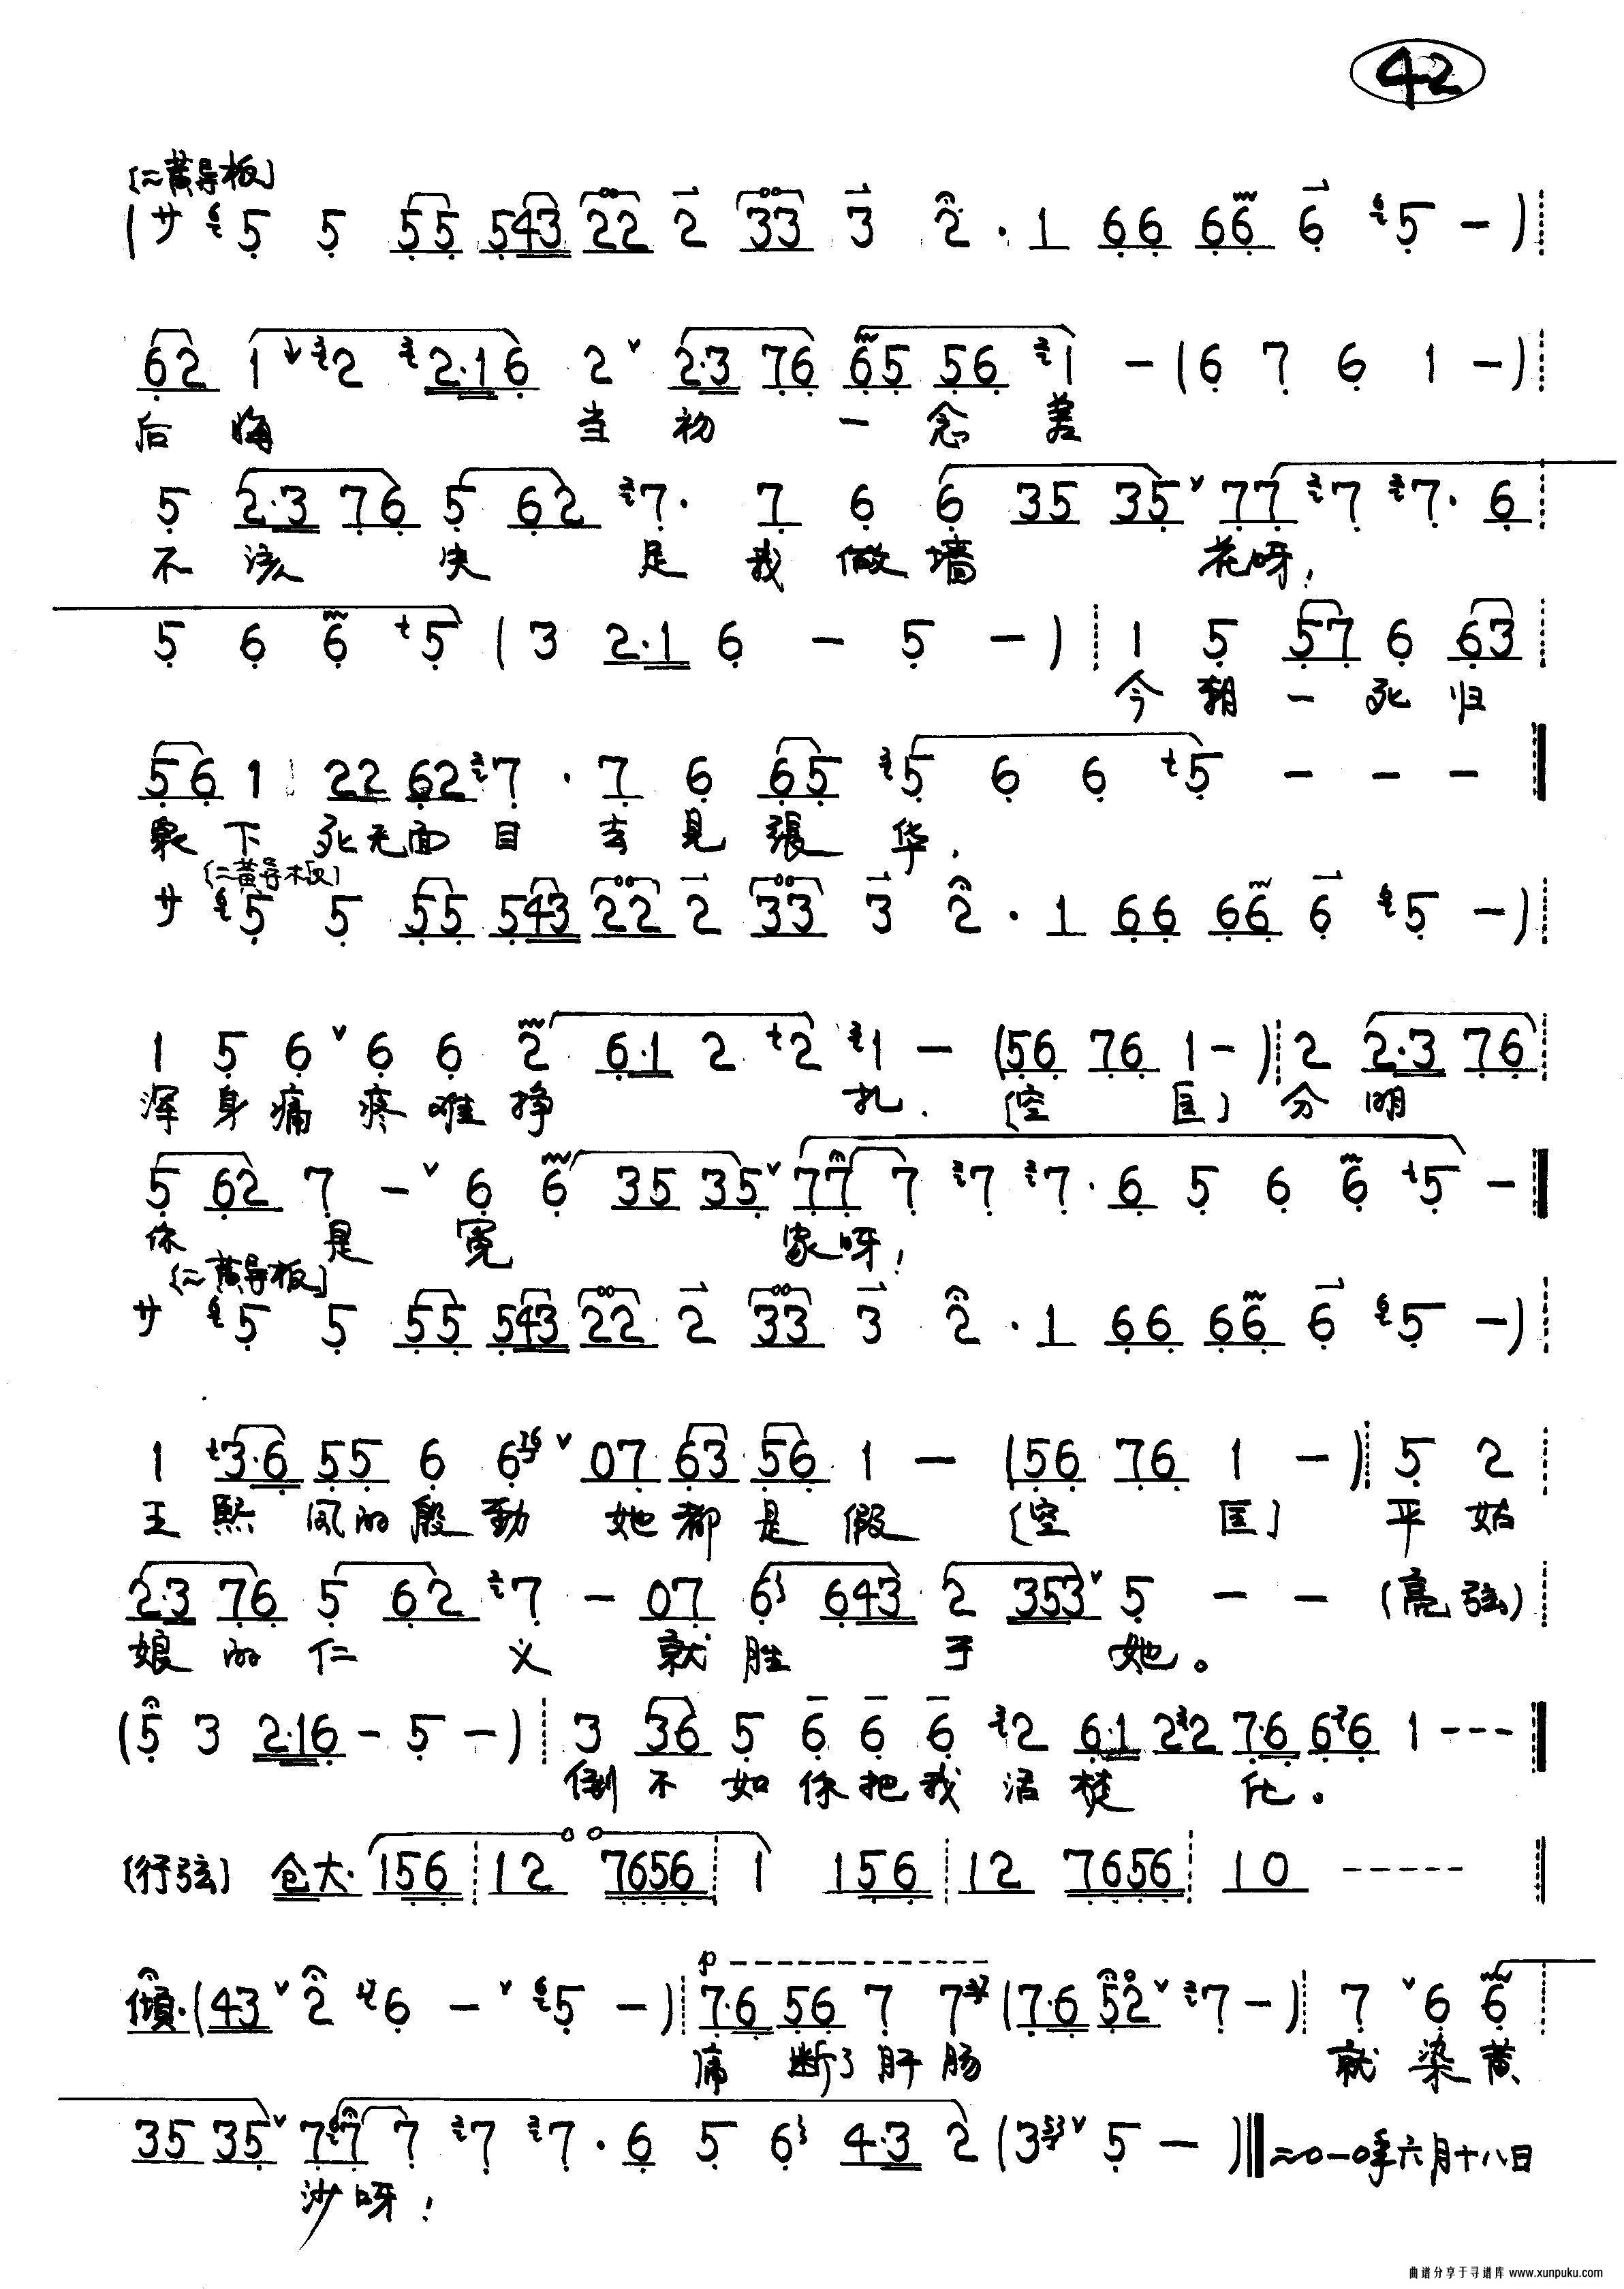 42
(二黄导板)
(サ 6 5 5 55 543 22 2 33 3 2 · 1 66 66 6 6 5 -)
62 1 2 2·16 2 2·3 76 65 56 1 - (6 7 6 1 -)
后 悔 当 初 一 念 差
5 2·3 76 5 62 7· 7 6 6 35 35 77 7 7· 6
不 该 失 足 我 做 墙 花呀,
5 6 6 5 (3 2·1 6 - 5 -) 1 5 57 6 63
今 朝 一 死 归
56 1 22 62 7 · 7 6 65 5 6 6 5 - - -
泉 下 死无面 目 去 见 張 华.
(二黄导板)
サ 6 5 5 55 543 22 2 33 3 2 · 1 66 66 6 6 5 -)
1 5 6 6 6 2 6·1 2 2 1 - (56 76 1 -) 2 2·3 76
浑 身 痛 疼 难 挣 扎. (空 匡) 分 明
5 62 7 - 6 6 35 35 77 7 7 7· 6 5 6 6 5 -
你 是 冤 家呀!
(二黄导板)
サ 6 5 5 55 543 22 2 33 3 2 · 1 66 66 6 6 5 -)
1 3·6 55 6 6 07 63 56 1 - (56 76 1 -) 5 2
王 熙 凤的 殷 勤 她 都 是 假 (空 匡) 平 姑
2·3 76 5 62 7 - 07 6 643 2 353 5 - - (亮弦)
娘 的 仁 义 就 胜 于 她。
(5 3 2·16 - 5 -) 3 36 5 6 6 6 2 6·1 22 7·6 66 1 ---
倒 不 如 你 把 我 活 焚 化。
(行弦) 仓大· 156 12 7656 1 156 12 7656 10 ------
傾·(43 2 6 - 6 5 -) p 7·6 56 7 7 (7·6 52 7 -) 7 6 6
痛 断了 肝 肠 就 染 黄
35 35 77 7 7 7· 6 5 6 4·3 2 (3 5 -) 二〇一〇年六月十八日
沙 呀!
曲谱分享于寻谱库 www.xunpuku.com